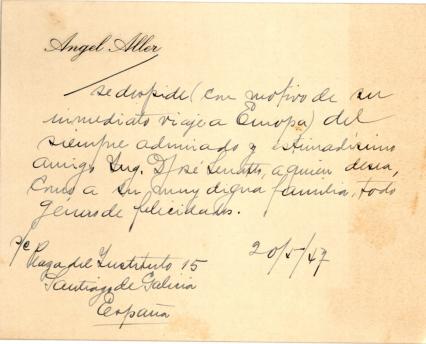 Angel Aller
se despide (con motivo de su
inmediato viaje a Europa) del
siempre admirado y estimadísimo
amigo Ing. D José, a quien desea,
como a su muy digna familia, todo
género de felicidades.
Plaza del Instituto 15
Santiago de Galicia
España
20/5/47